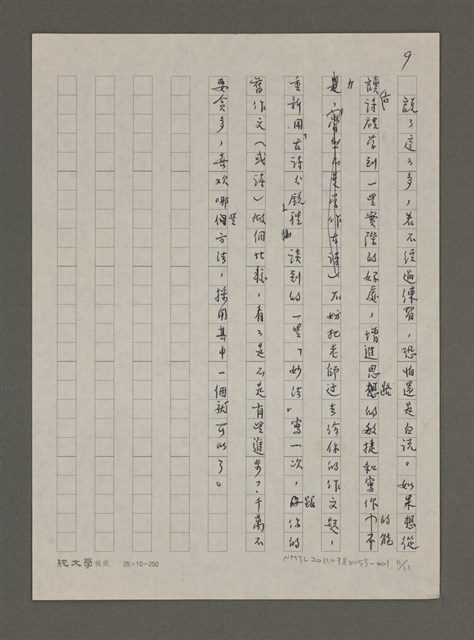 9
說了這么多，若不經過練習，恐怕還是白說。如果想從
讀古詩裡學到一些實際的好處，增進思路的敏捷和寫作的能
力，不妨把老師過去給你的作文題，
重新用「古詩大觀裡」談到的一些「妙法」寫一次，跟你的
舊作文（或詩）做個比較，看看是不是有些進步？千萬不
要貪多，喜歡哪些個方法，採用其中一個就可以了。
純文學稿紙 25×10=250
NMTL20110380053-001 11/11